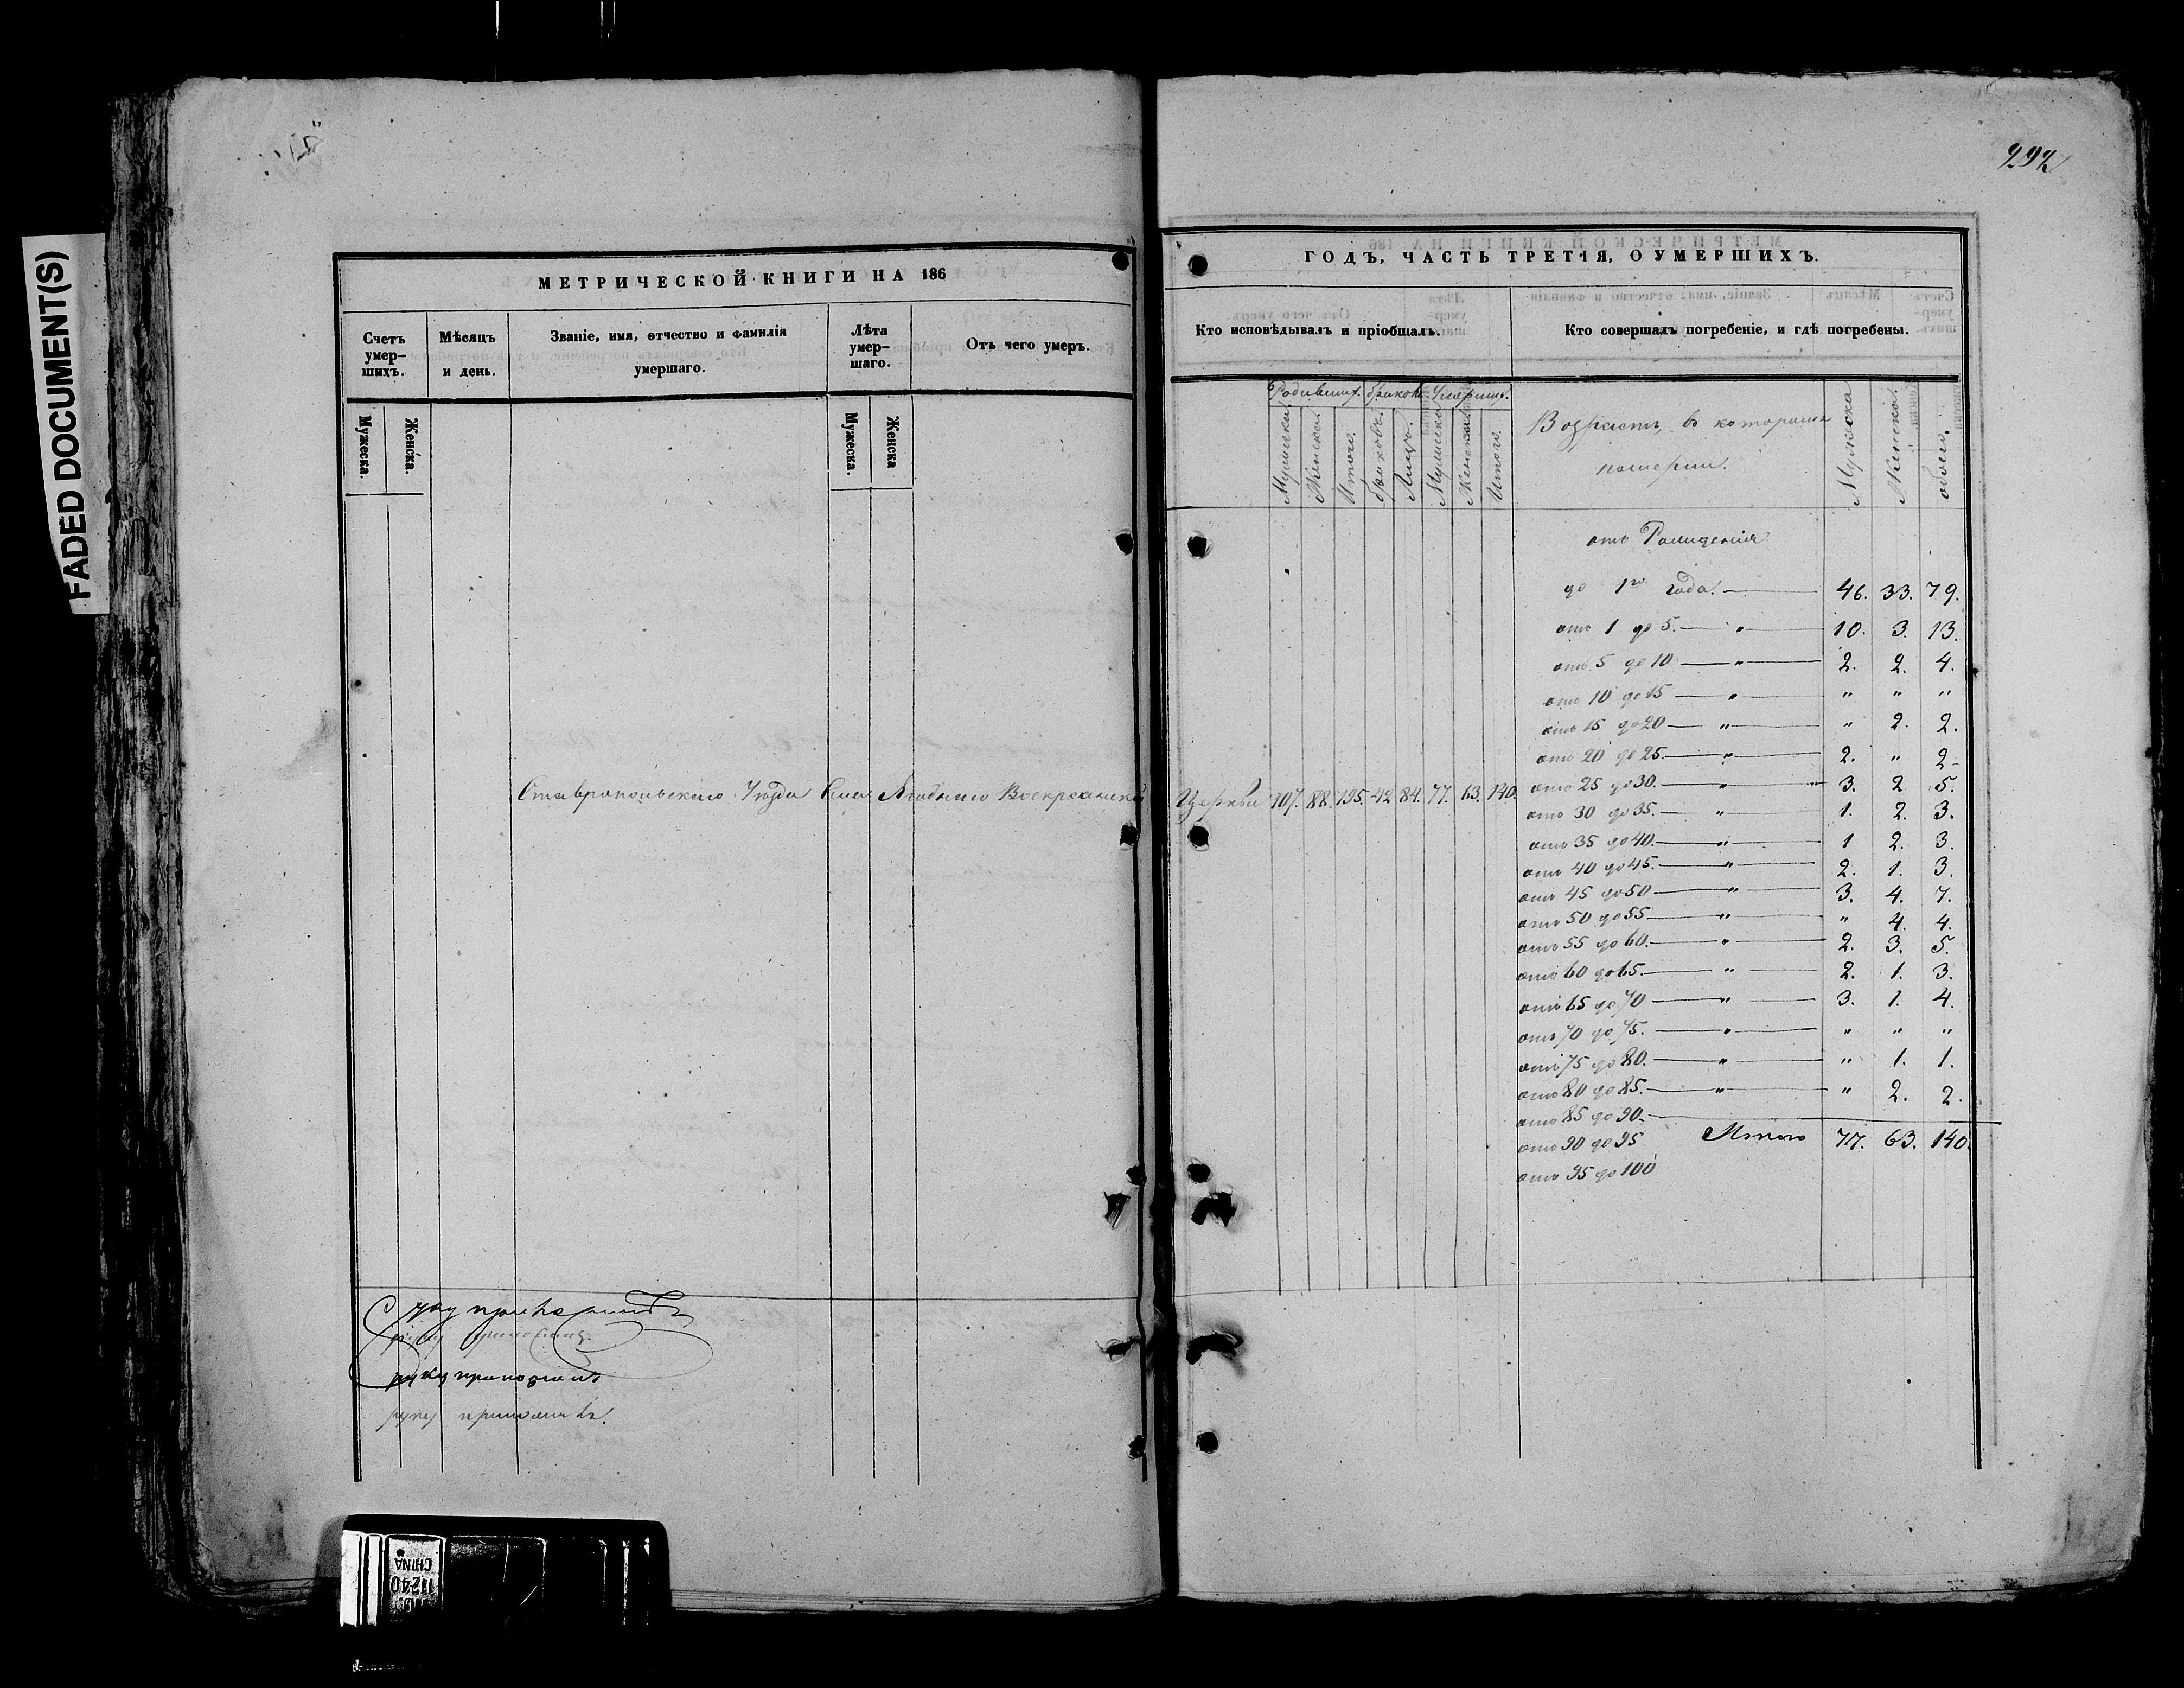 FADED DOCUMENT(S)
292
МЕТРИЧЕСКОЙ КНИГИ НА 186
Счетъ умер-
шихъ.
Мѣсяцъ
и день.
Званіе, имя, отчество и фамилія
умершаго.
Лѣта
умер-
шаго.
Отъ чего умеръ.
Мужеска.
Женска.
Мужеска.
Женска
Ставропольскаго Уѣзда Села Ягоднаго Воскресенской
руку приложилъ
руку приложилъ
руку приложилъ.
ГОДЪ, ЧАСТЬ ТРЕТІЯ, О УМЕРШИХЪ.
Кто исповѣдывалъ и пріобщалъ.
Кто совершалъ погребеніе, и гдѣ погребены.
Родивших. браков. Умерших.
Мужеска.
Женска.
Итого.
браковъ.
Лицъ.
Мужеска
Женска.
Итого.
Возрастъ, въ которомъ
померли.
Мужска
Женска.
обоего.
Церкви 107. 88. 195. 42 84. 77. 63. 140.
отъ Рожденія
до 1го года. — 46. 33. 79.
отъ 1 до 5. — " — 10. 3. 13.
отъ 5 до 10 — " — 2. 2. 4.
отъ 10 до 15 — " — " " "
отъ 15 до 20 — " — " 2. 2.
отъ 20 до 25. — " — 2. " 2
отъ 25 до 30. — " — 3. 2 5.
отъ 30 до 35. — " — 1. 2. 3.
отъ 35 до 40. — " — 1 2. 3.
отъ 40 до 45. — " — 2. 1. 3.
отъ 45 до 50 — " — 3. 4. 7.
отъ 50 до 55 — " — " 4. 4.
отъ 55 до 60. — " — 2. 3. 5.
отъ 60 до 65. — " — 2. 1. 3.
отъ 65 до 70 — " — 3. 1. 4.
отъ 70 до 75. — " — " " "
отъ 75 до 80. — " — " 1. 1.
отъ 80 до 85. — " — " 2. 2.
отъ 85 до 90. —
отъ 90 до 95 Итого 77. 63. 140.
отъ 95 до 100
CHINA
11240